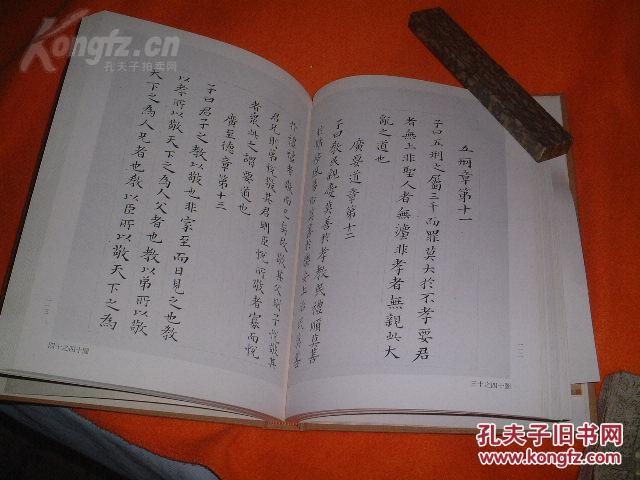 Kongfz.cn
孔夫子拍卖网
五刑章第十一
子曰五刑之屬三千而罪莫大於不孝要君
者無上非聖人者無灋非孝者無親此大
亂之道也
廣要道章第十二
子曰教民親愛莫善於孝教民禮順莫善
移風易俗莫善於樂安上治民莫善
一二
三十之四十圖
於禮禮者敬而已矣故敬其父則子悅敬其
兄則弟悅敬其君則臣悅所敬者寡而悅
者衆此之謂要道也
廣至德章第十三
子曰君子之教以敬也非家至而日見之也教
以孝所以敬天下之為人父者也教以弟所以敬
天下之為人兄者也教以臣所以敬天下之為
一三
四十之四十圖
孔夫子旧书网
www.kongfz.com